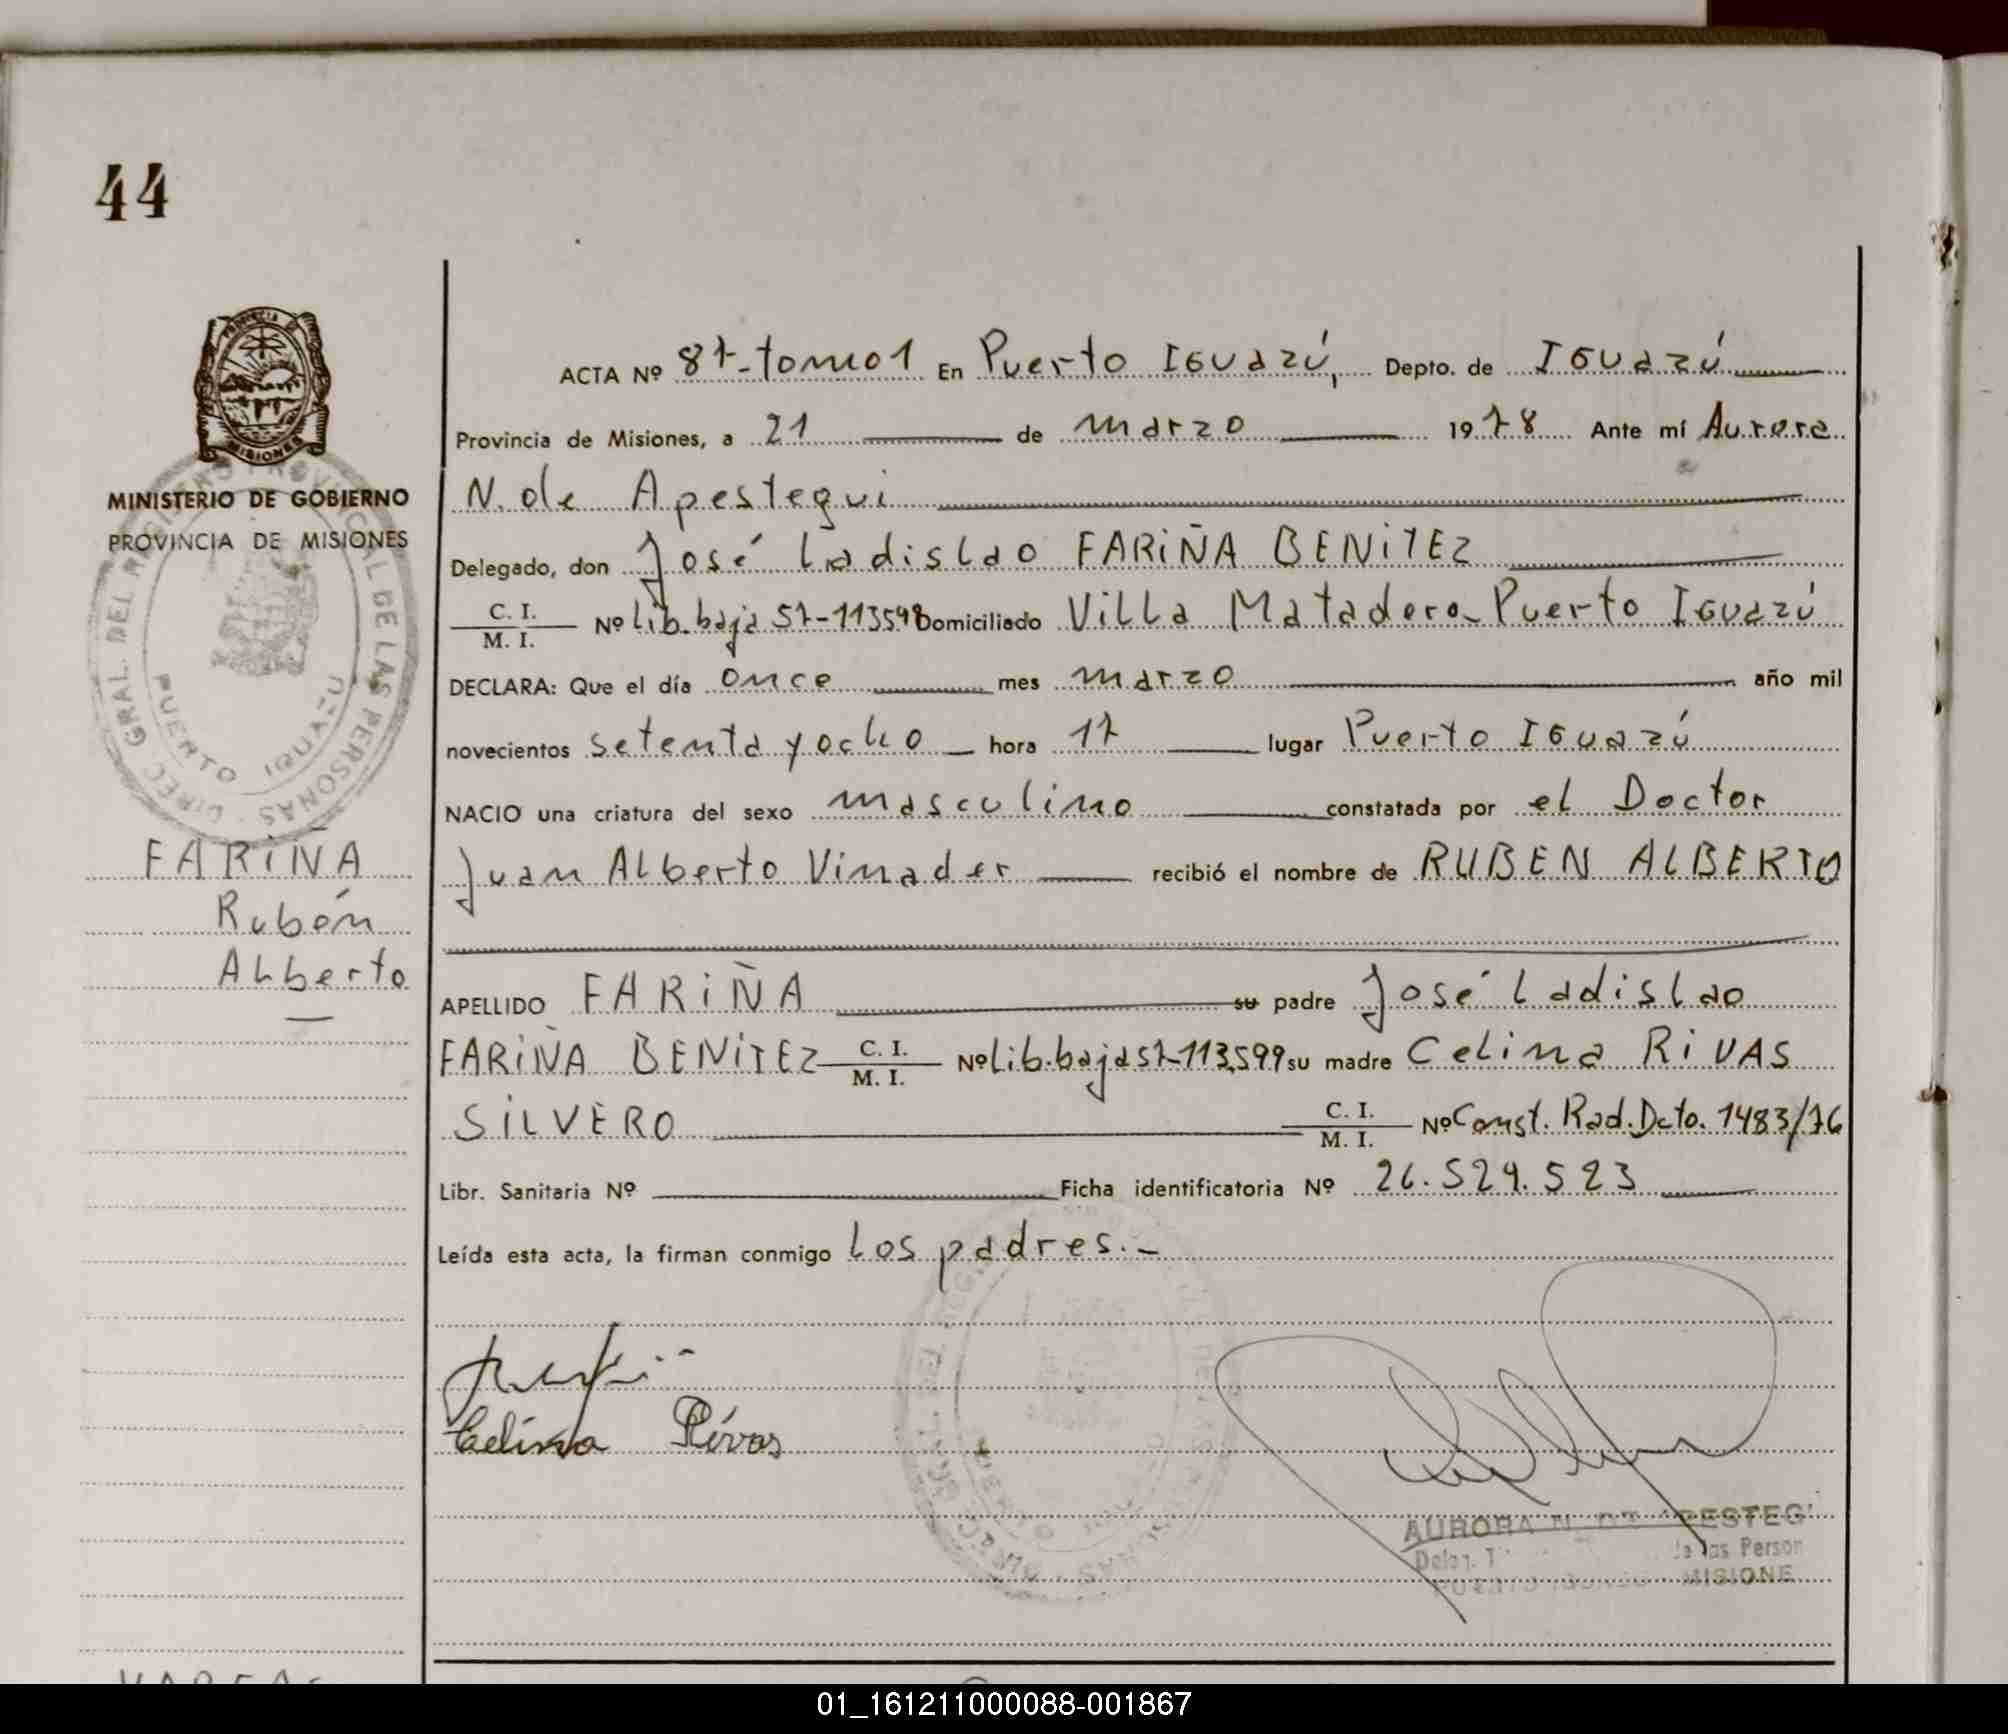 44
PROVINCIA DE
MISIONES
MINISTERIO DE GOBIERNO
PROVINCIA DE MISIONES
DIREC. GRAL. DEL REGISTRO PROVINCIAL DE LAS PERSONAS
PUERTO IGUAZU
FARIÑA
Rubén
Alberto
ACTA Nº 87-tomo1 En Puerto IGUazú, Depto. de IGUazú
Provincia de Misiones, a 21 de marzo 1978 Ante mí Aurora
N. de Apestegui
Delegado, don José Ladislao FARIÑA BENITEZ
C. I. / M. I. Nº Lib.baja 57-113598 Domiciliado Villa Matadero-Puerto IGUazú
DECLARA: Que el día once mes marzo año mil
novecientos setenta y ocho hora 17 lugar Puerto IGUazú
NACIO una criatura del sexo masculino constatada por el Doctor
Juan Alberto Vinader recibió el nombre de RUBEN ALBERTO
APELLIDO FARIÑA su padre José Ladislao
FARIÑA BENITEZ C. I. / M. I. Nº Lib.baja 57-113.599 su madre Celina RIVAS
SILVERO C. I. / M. I. Nº Const. Rad. Dcto. 1483/76
Libr. Sanitaria Nº Ficha identificatoria Nº 26.529.523
Leída esta acta, la firman conmigo los padres.-
Celina Rivas
AURORA N. DE PESTEG
de las Person
MISIONE
01_161211000088-001867